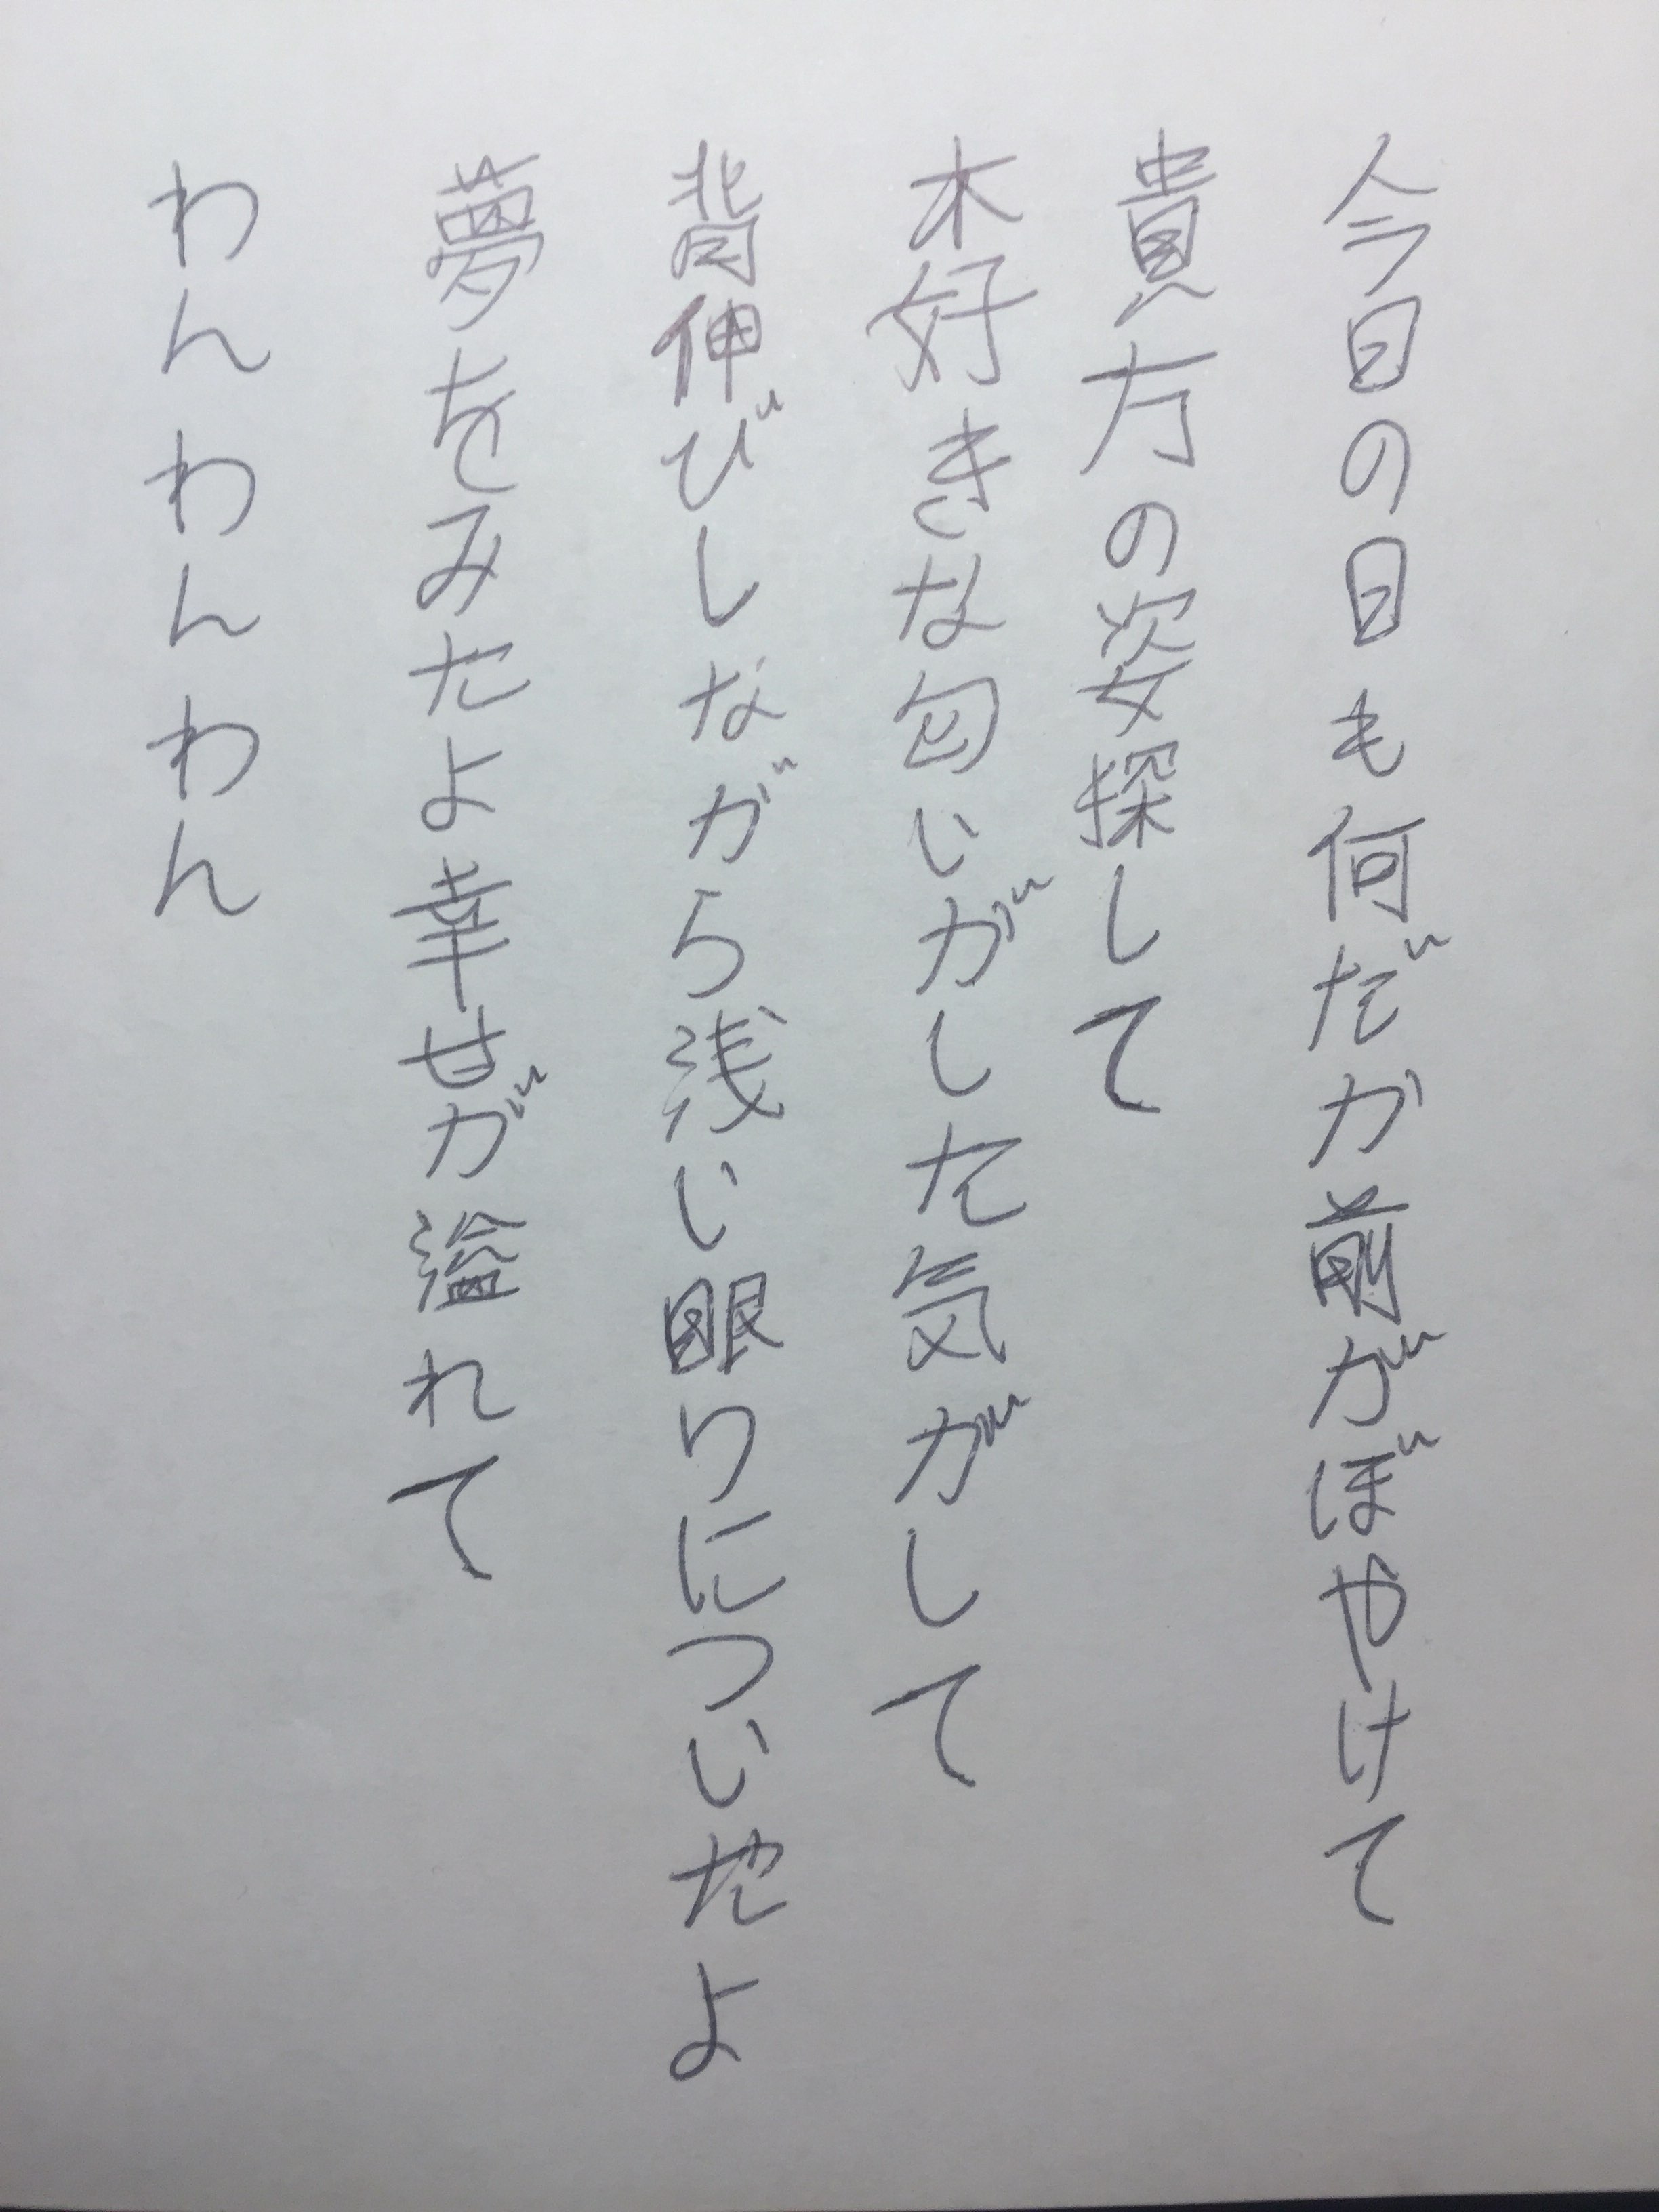 今日の日も何だか前がぼやけて
貴方の姿探して
木好きな匂いがした気がして
背伸びしながら浅い眠りについたよ
夢をみたよ幸せが溢れて
わんわんわん